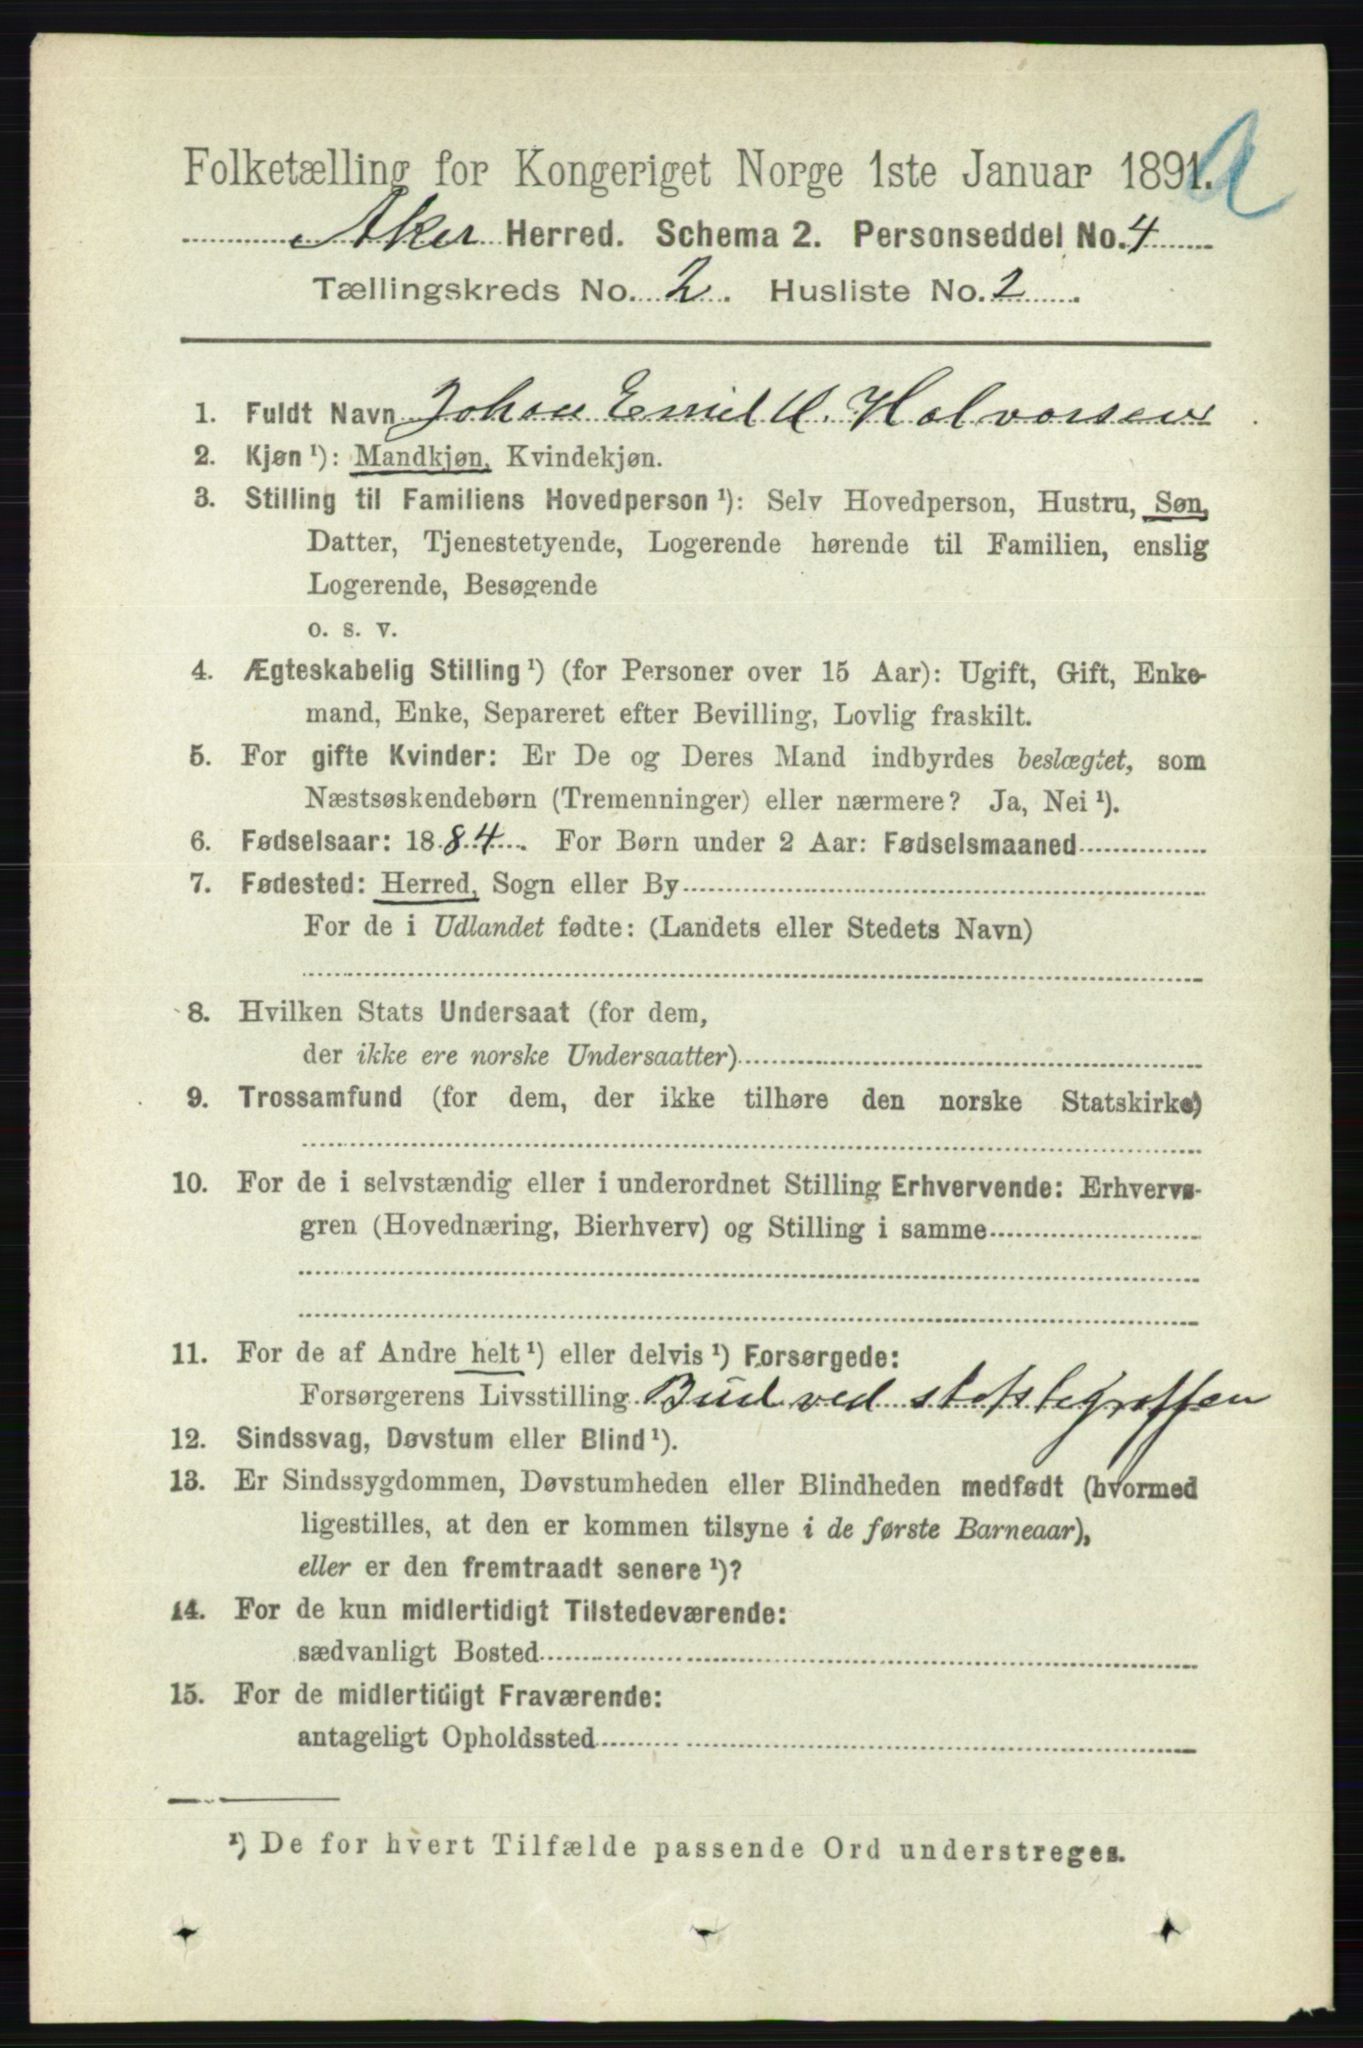 Folketælling for Kongeriget Norge 1ste Januar 1891.
Aker Herred. Schema 2. Personseddel No. 4
Tællingskreds No. 2. Husliste No. 2.
1. Fuldt Navn Johan Emil U. Halvorsen
2. Kjøn ¹): Mandkjøn, Kvindekjøn.
3. Stilling til Familiens Hovedperson ¹): Selv Hovedperson, Hustru, Søn,
Datter, Tjenestetyende, Logerende hørende til Familien, enslig
Logerende, Besøgende
o. s. v.
4. Ægteskabelig Stilling ¹) (for Personer over 15 Aar): Ugift, Gift, Enke-
mand, Enke, Separeret efter Bevilling, Lovlig fraskilt.
5. For gifte Kvinder: Er De og Deres Mand indbyrdes beslægtet, som
Næstsøskendebørn (Tremenninger) eller nærmere? Ja, Nei ¹).
6. Fødselsaar: 1884. For Børn under 2 Aar: Fødselsmaaned
7. Fødested: Herred, Sogn eller By
For de i Udlandet fødte: (Landets eller Stedets Navn)
8. Hvilken Stats Undersaat (for dem,
der ikke ere norske Undersaatter)
9. Trossamfund (for dem, der ikke tilhøre den norske Statskirke)
10. For de i selvstændig eller i underordnet Stilling Erhvervende: Erhvervs-
gren (Hovednæring, Bierhverv) og Stilling i samme
11. For de af Andre helt ¹) eller delvis ¹) Forsørgede:
Forsørgerens Livsstilling Bud ved
12. Sindssvag, Døvstum eller Blind ¹).
13. Er Sindssygdommen, Døvstumheden eller Blindheden medfødt (hvormed
ligestilles, at den er kommen tilsyne i de første Barneaar),
eller er den fremtraadt senere ¹)?
14. For de kun midlertidigt Tilstedeværende:
sædvanligt Bosted
15. For de midlertidigt Fraværende:
antageligt Opholdssted
¹) De for hvert Tilfælde passende Ord understreges.